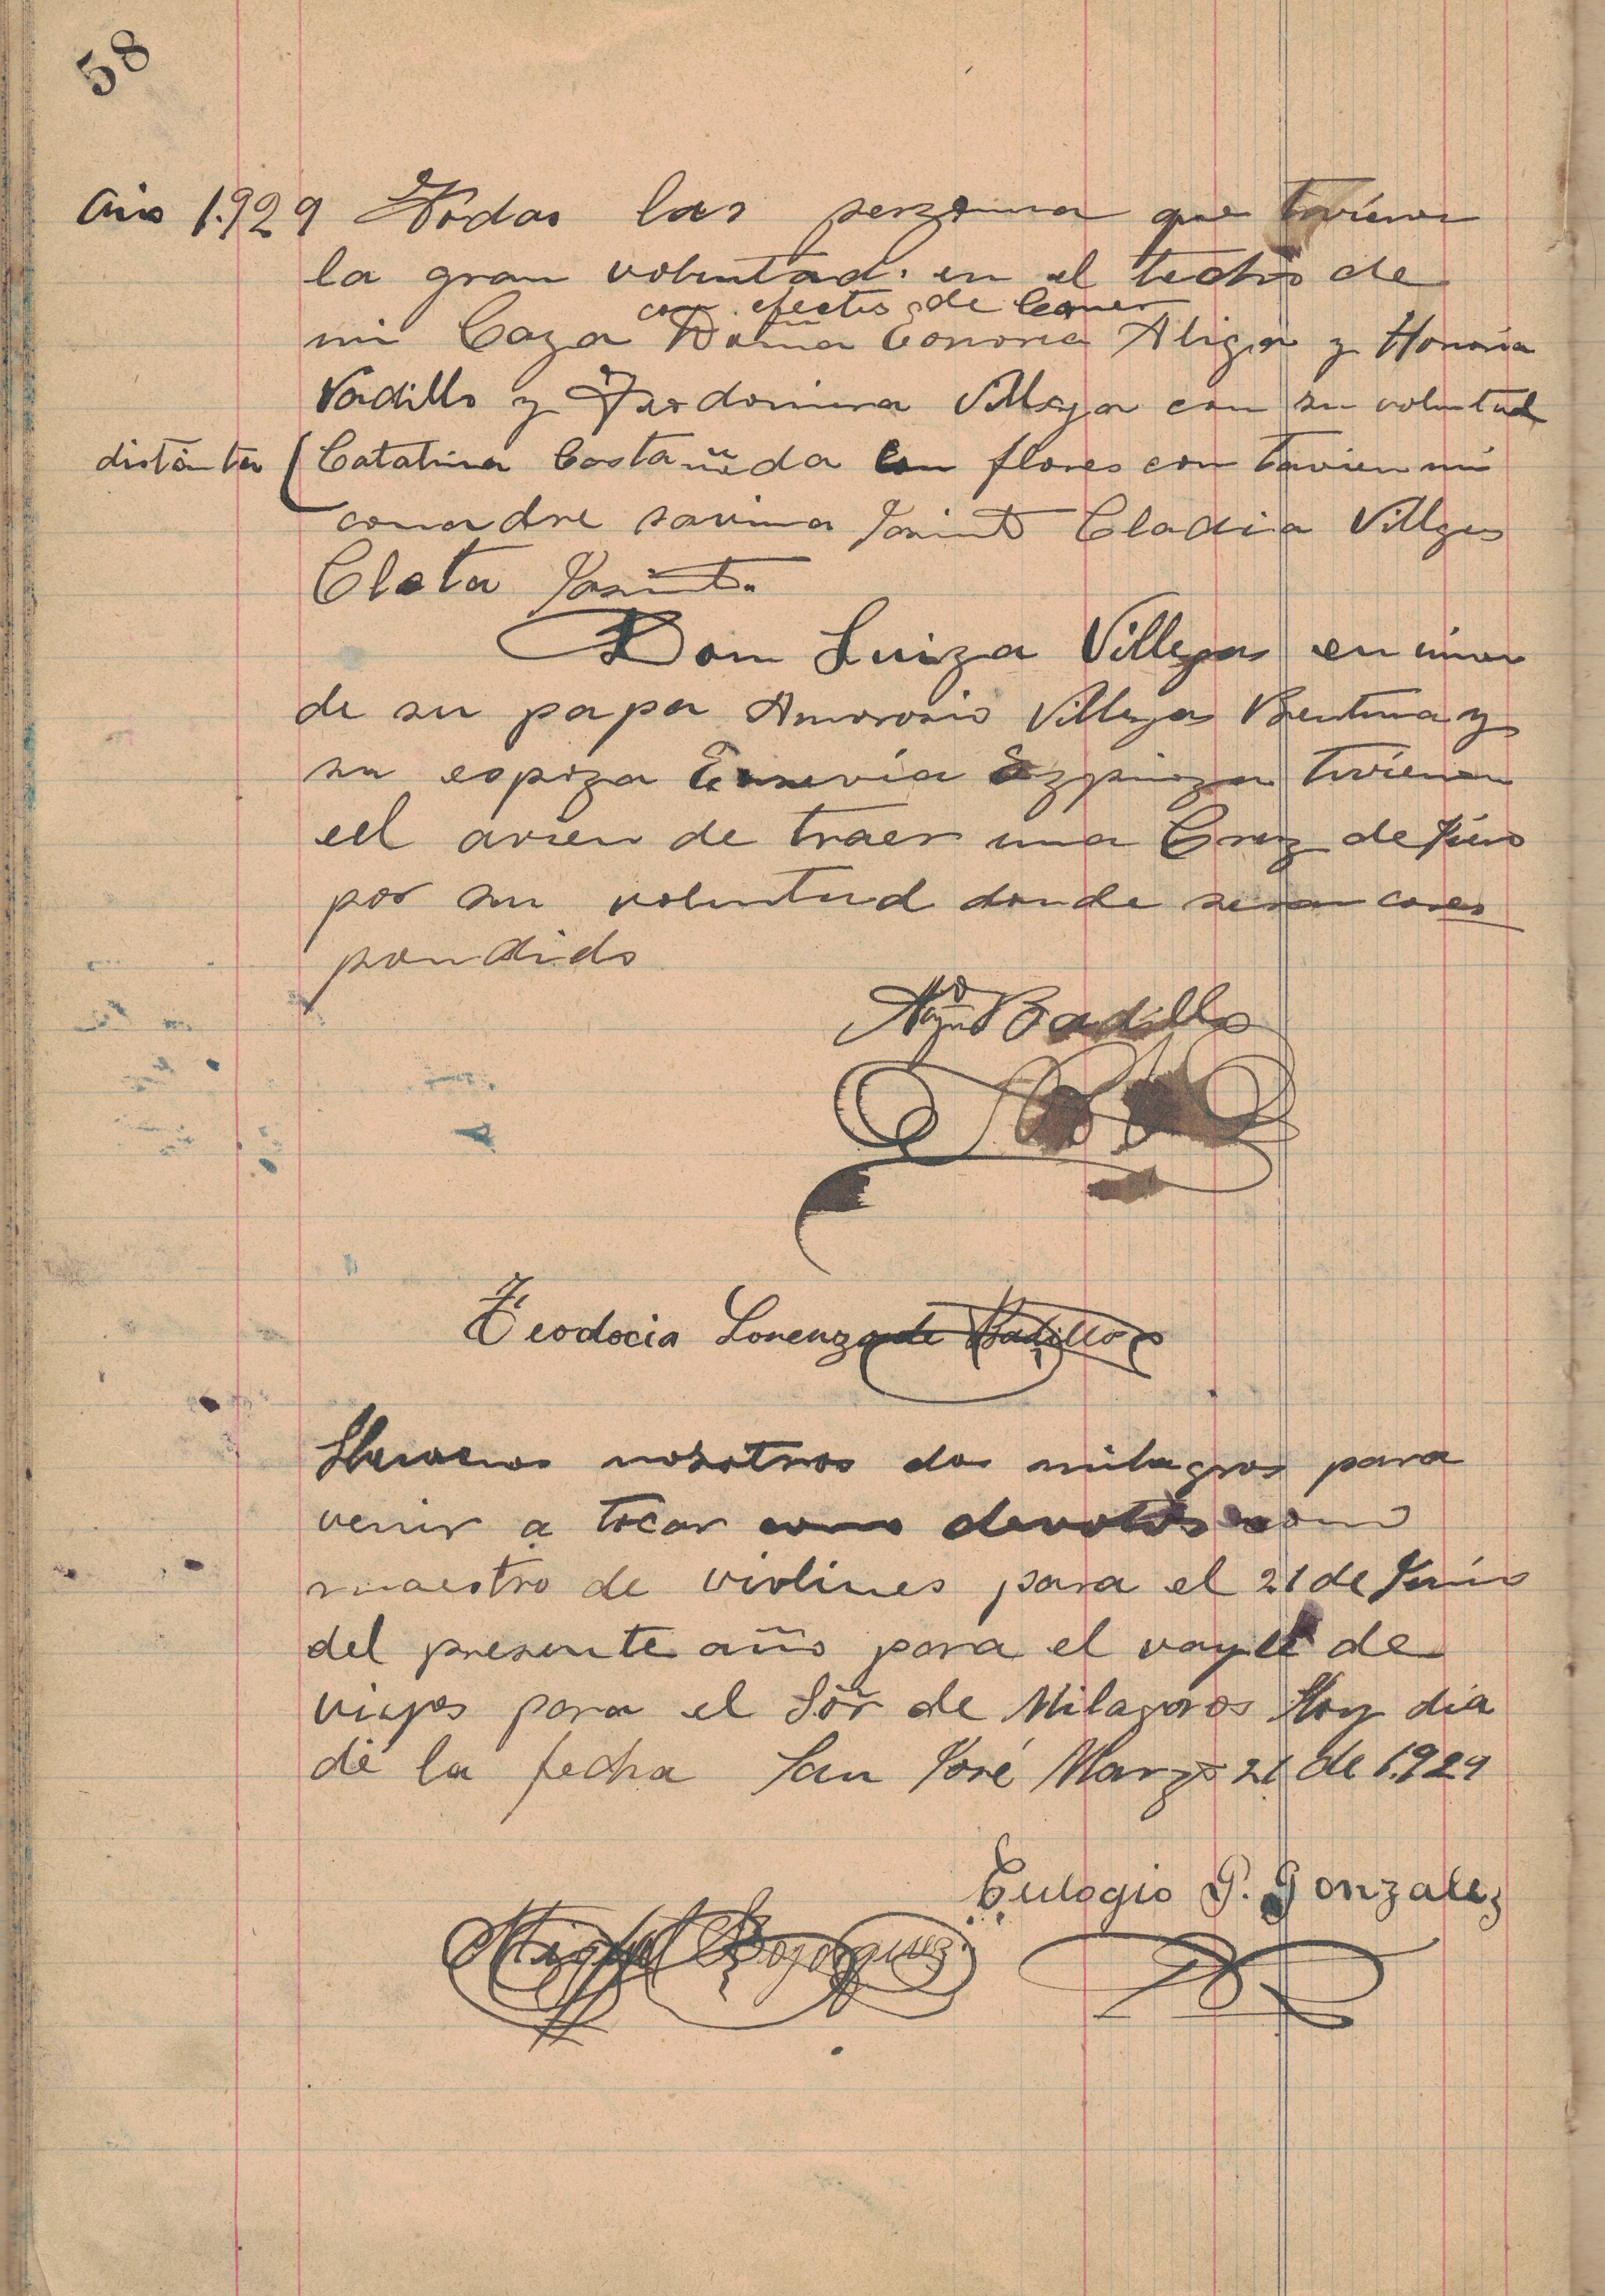 58
Año 1.929 Todas las perzonna que tovieron
la gran voluntad. en el techo de
con efectos de Comer
mi Caza Doña Conona Aliga y Honoria
Vadillo y Fardomina Villega con su voluntad
distânta ( Catalina Castañeda con flores con tavien mi
comadre savina Jasinto Cladia Villgas
Cleta Jasinto.
Don Luiza Villegas en union
de su papa Amorosio Villegas Bentura y
su espoza Eusevia Ezpinoza tovieron
eel avien de traer una Cruz de
por su voluntad donde seran cores
pondido
Badillo
Teodocia Lorenzo de Badillo
Llevamos nosotros dos milagros para
venir a tocar como devotos como
maestro de violines para el 21 de Junio
del presente año para el vayle de
viejos para el Sõr de Milagros Hoy dia
de la fecha San José Marzo 21 de 1.929
Eulogio P. Gonzalez
Miguel Bojorquez